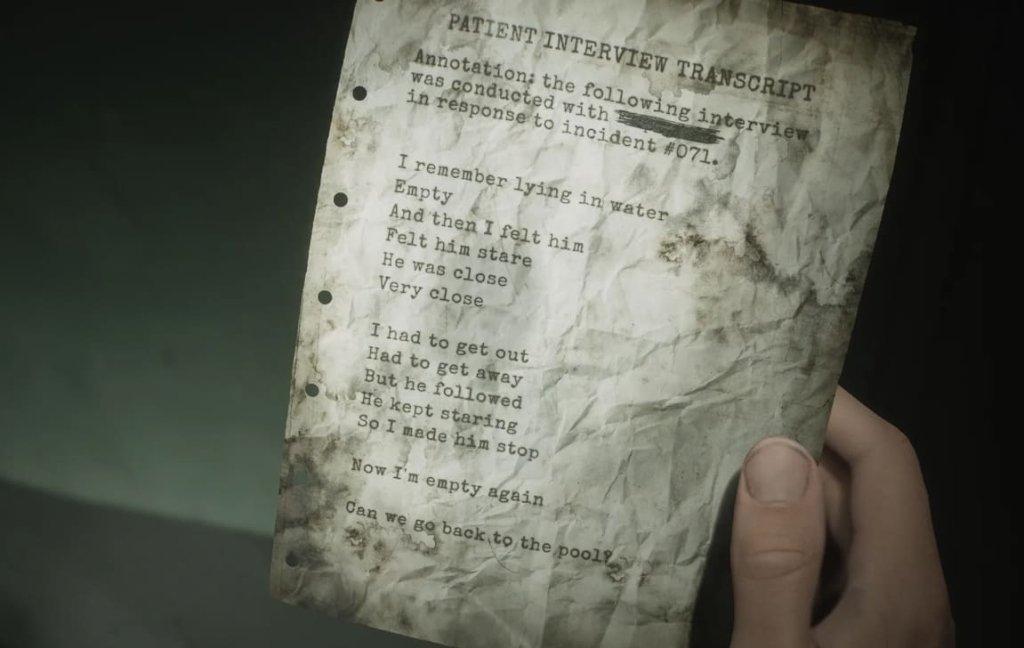 PATIENT INTERVIEW TRANSCRIPT
Annotation: the following interview
was conducted with
in response to incident #071.
I remember lying in water
Empty
And then I felt him
Felt him stare
He was close
Very close
I had to get out
Had to get away
But he followed
He kept staring
So I made him stop
Now I'm empty again
Can we go back to the pool?